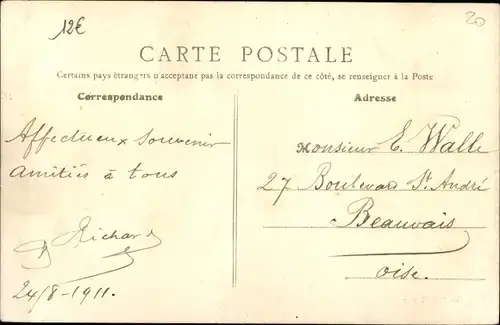 12€
20
CARTE POSTALE
Certains pays étrangers n'acceptant pas la correspondance de ce côté, se renseigner à la Poste
Correspondance
Affectueux souvenir
amitiés à tous
Richard
24/8-1911.
Adresse
Monsieur E. Walle
27 Boulevard St. André
Beauvais
Oise.